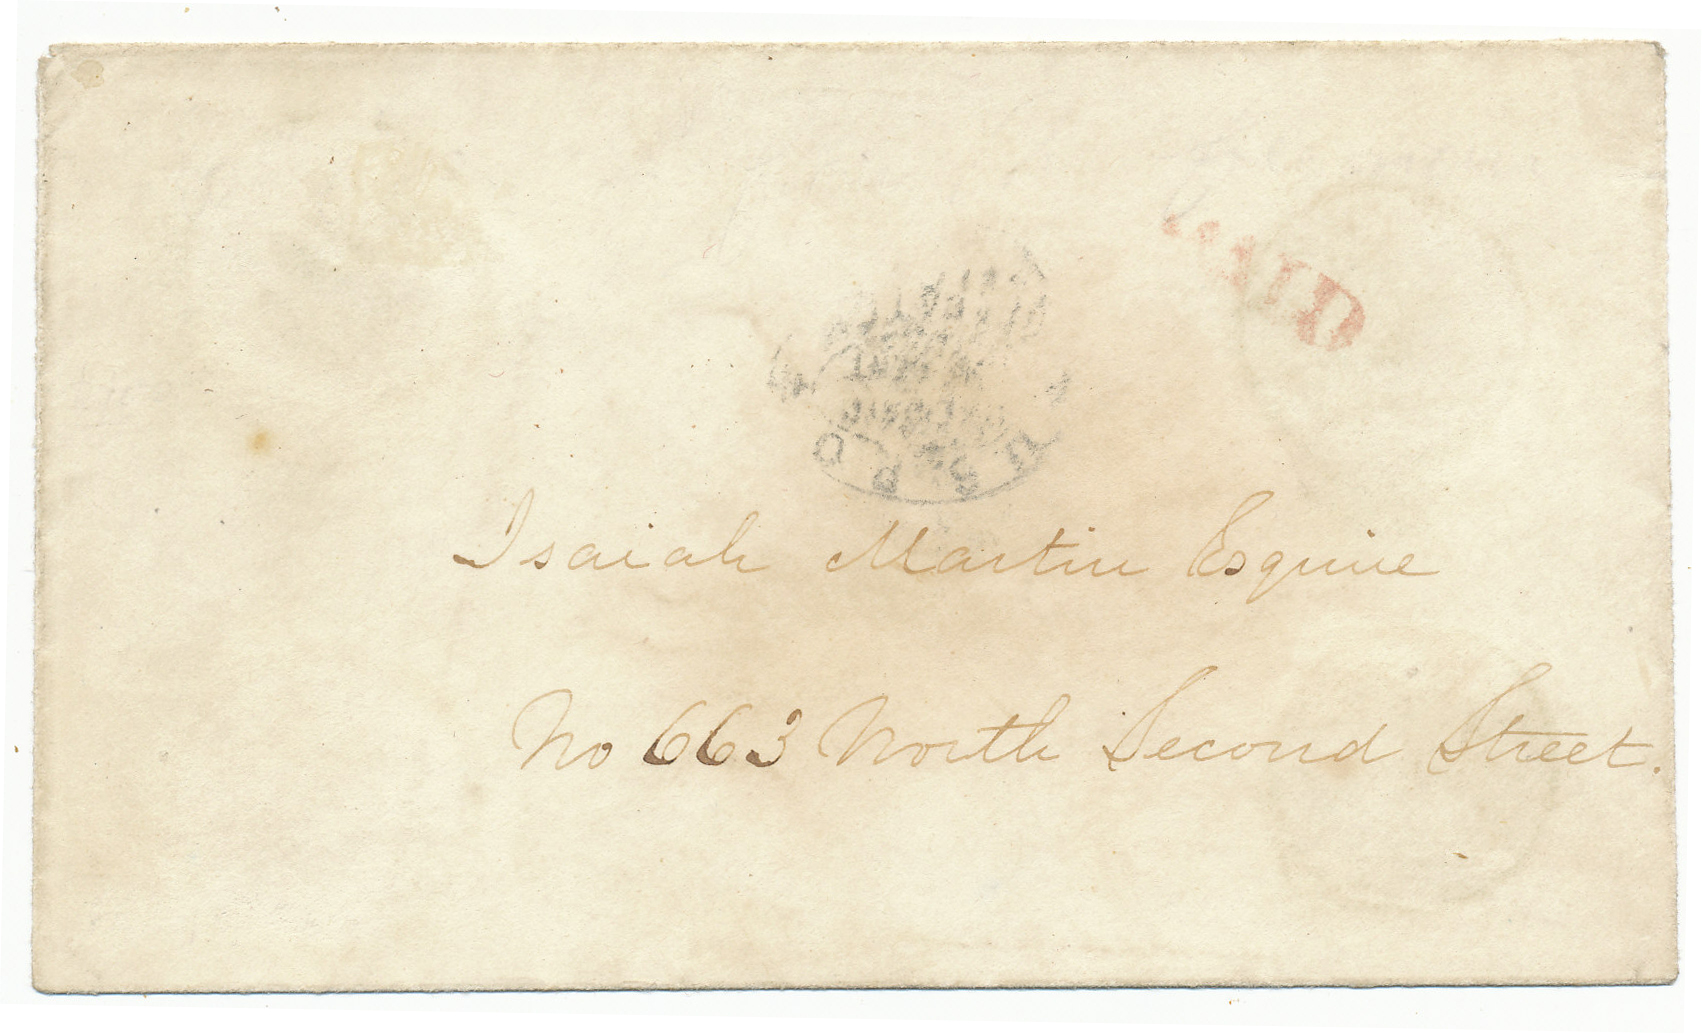 PAID
U S P O
Isaiah Martin Esquire
No 663 North Second Street.